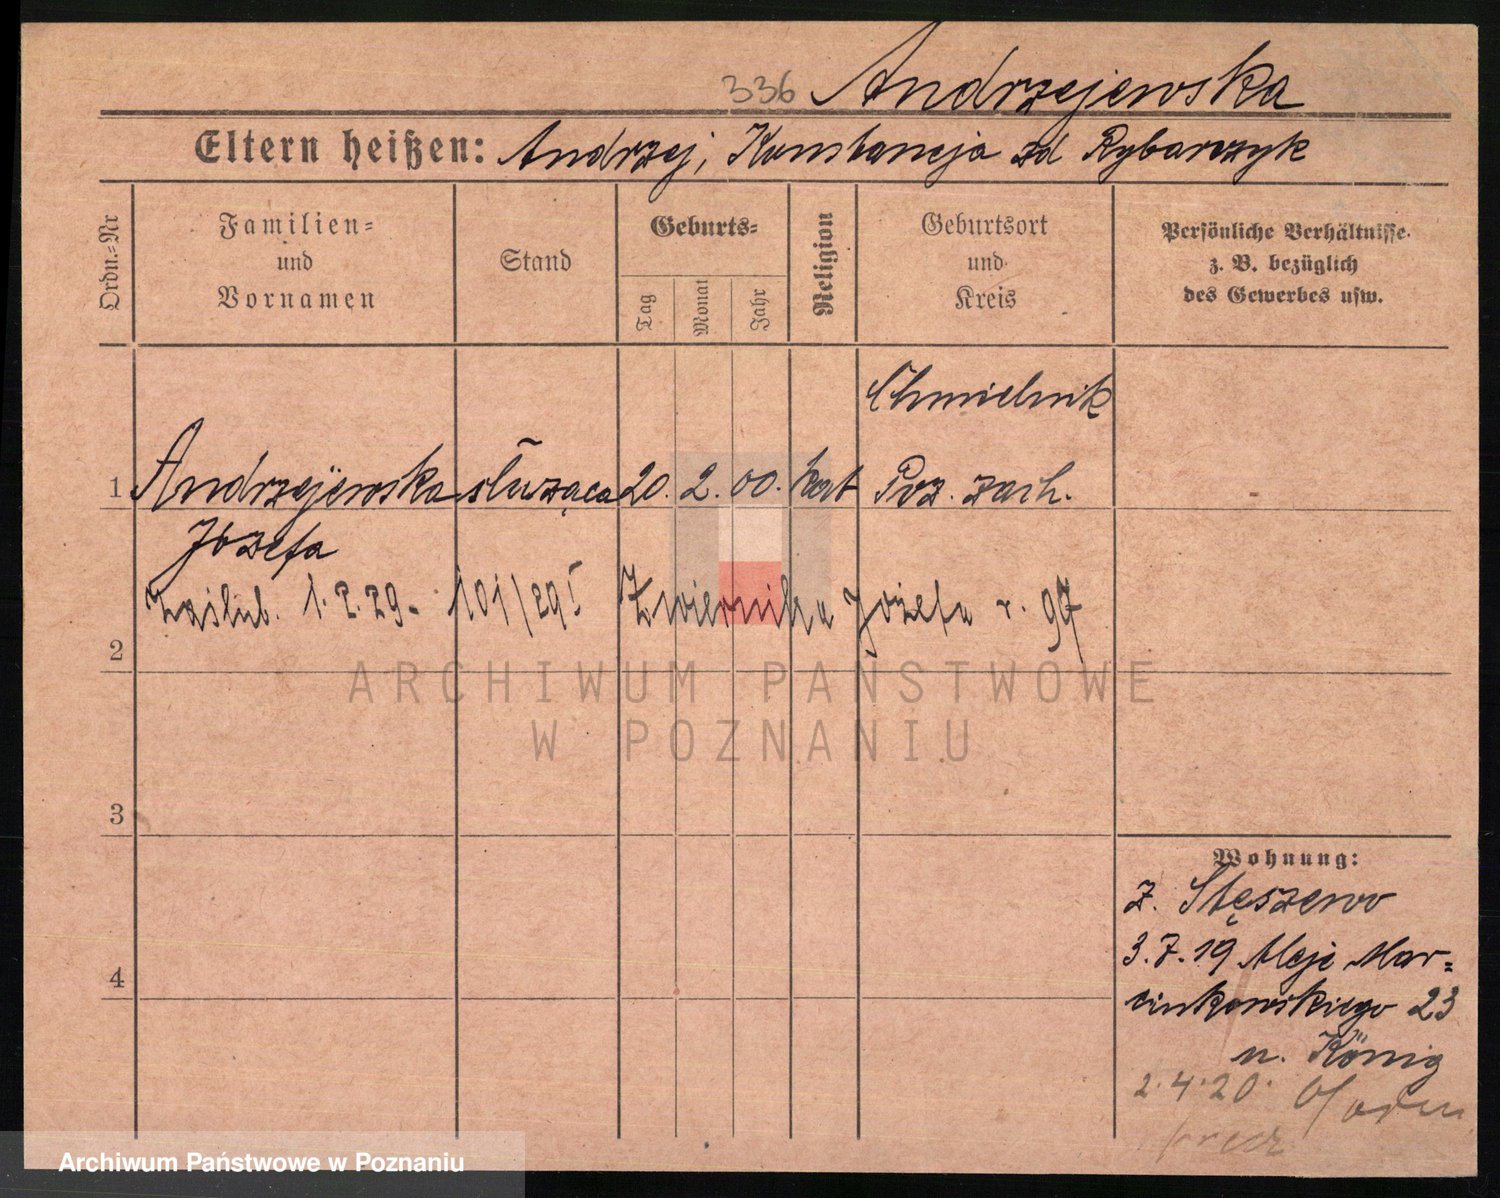 336 Andrzejewska
Eltern heißen: Andrzej, Konstancja zd Rybarczyk
Ordn.-Nr
Familien-
und
Vornamen
Stand
Geburts-
Tag
Monat
Jahr
Religion
Geburtsort
und
Kreis
Persönliche Verhältnisse
z. B. bezüglich
des Gewerbes usw.
Chmielnik
1 Andrzejewska służąca 20. 2. 00. kat Poz. zach.
Józefa
Zaślub. 1.2.29 - 101/29 Żwiernika Józefa r. 97
2
ARCHIWUM PAŃSTWOWE
W POZNANIU
3
Wohnung:
z. Stęszewo
3.7.19 Aleje Mar=
cinkowskiego 23
u. König
4
2.4.20.
Archiwum Państwowe w Poznaniu